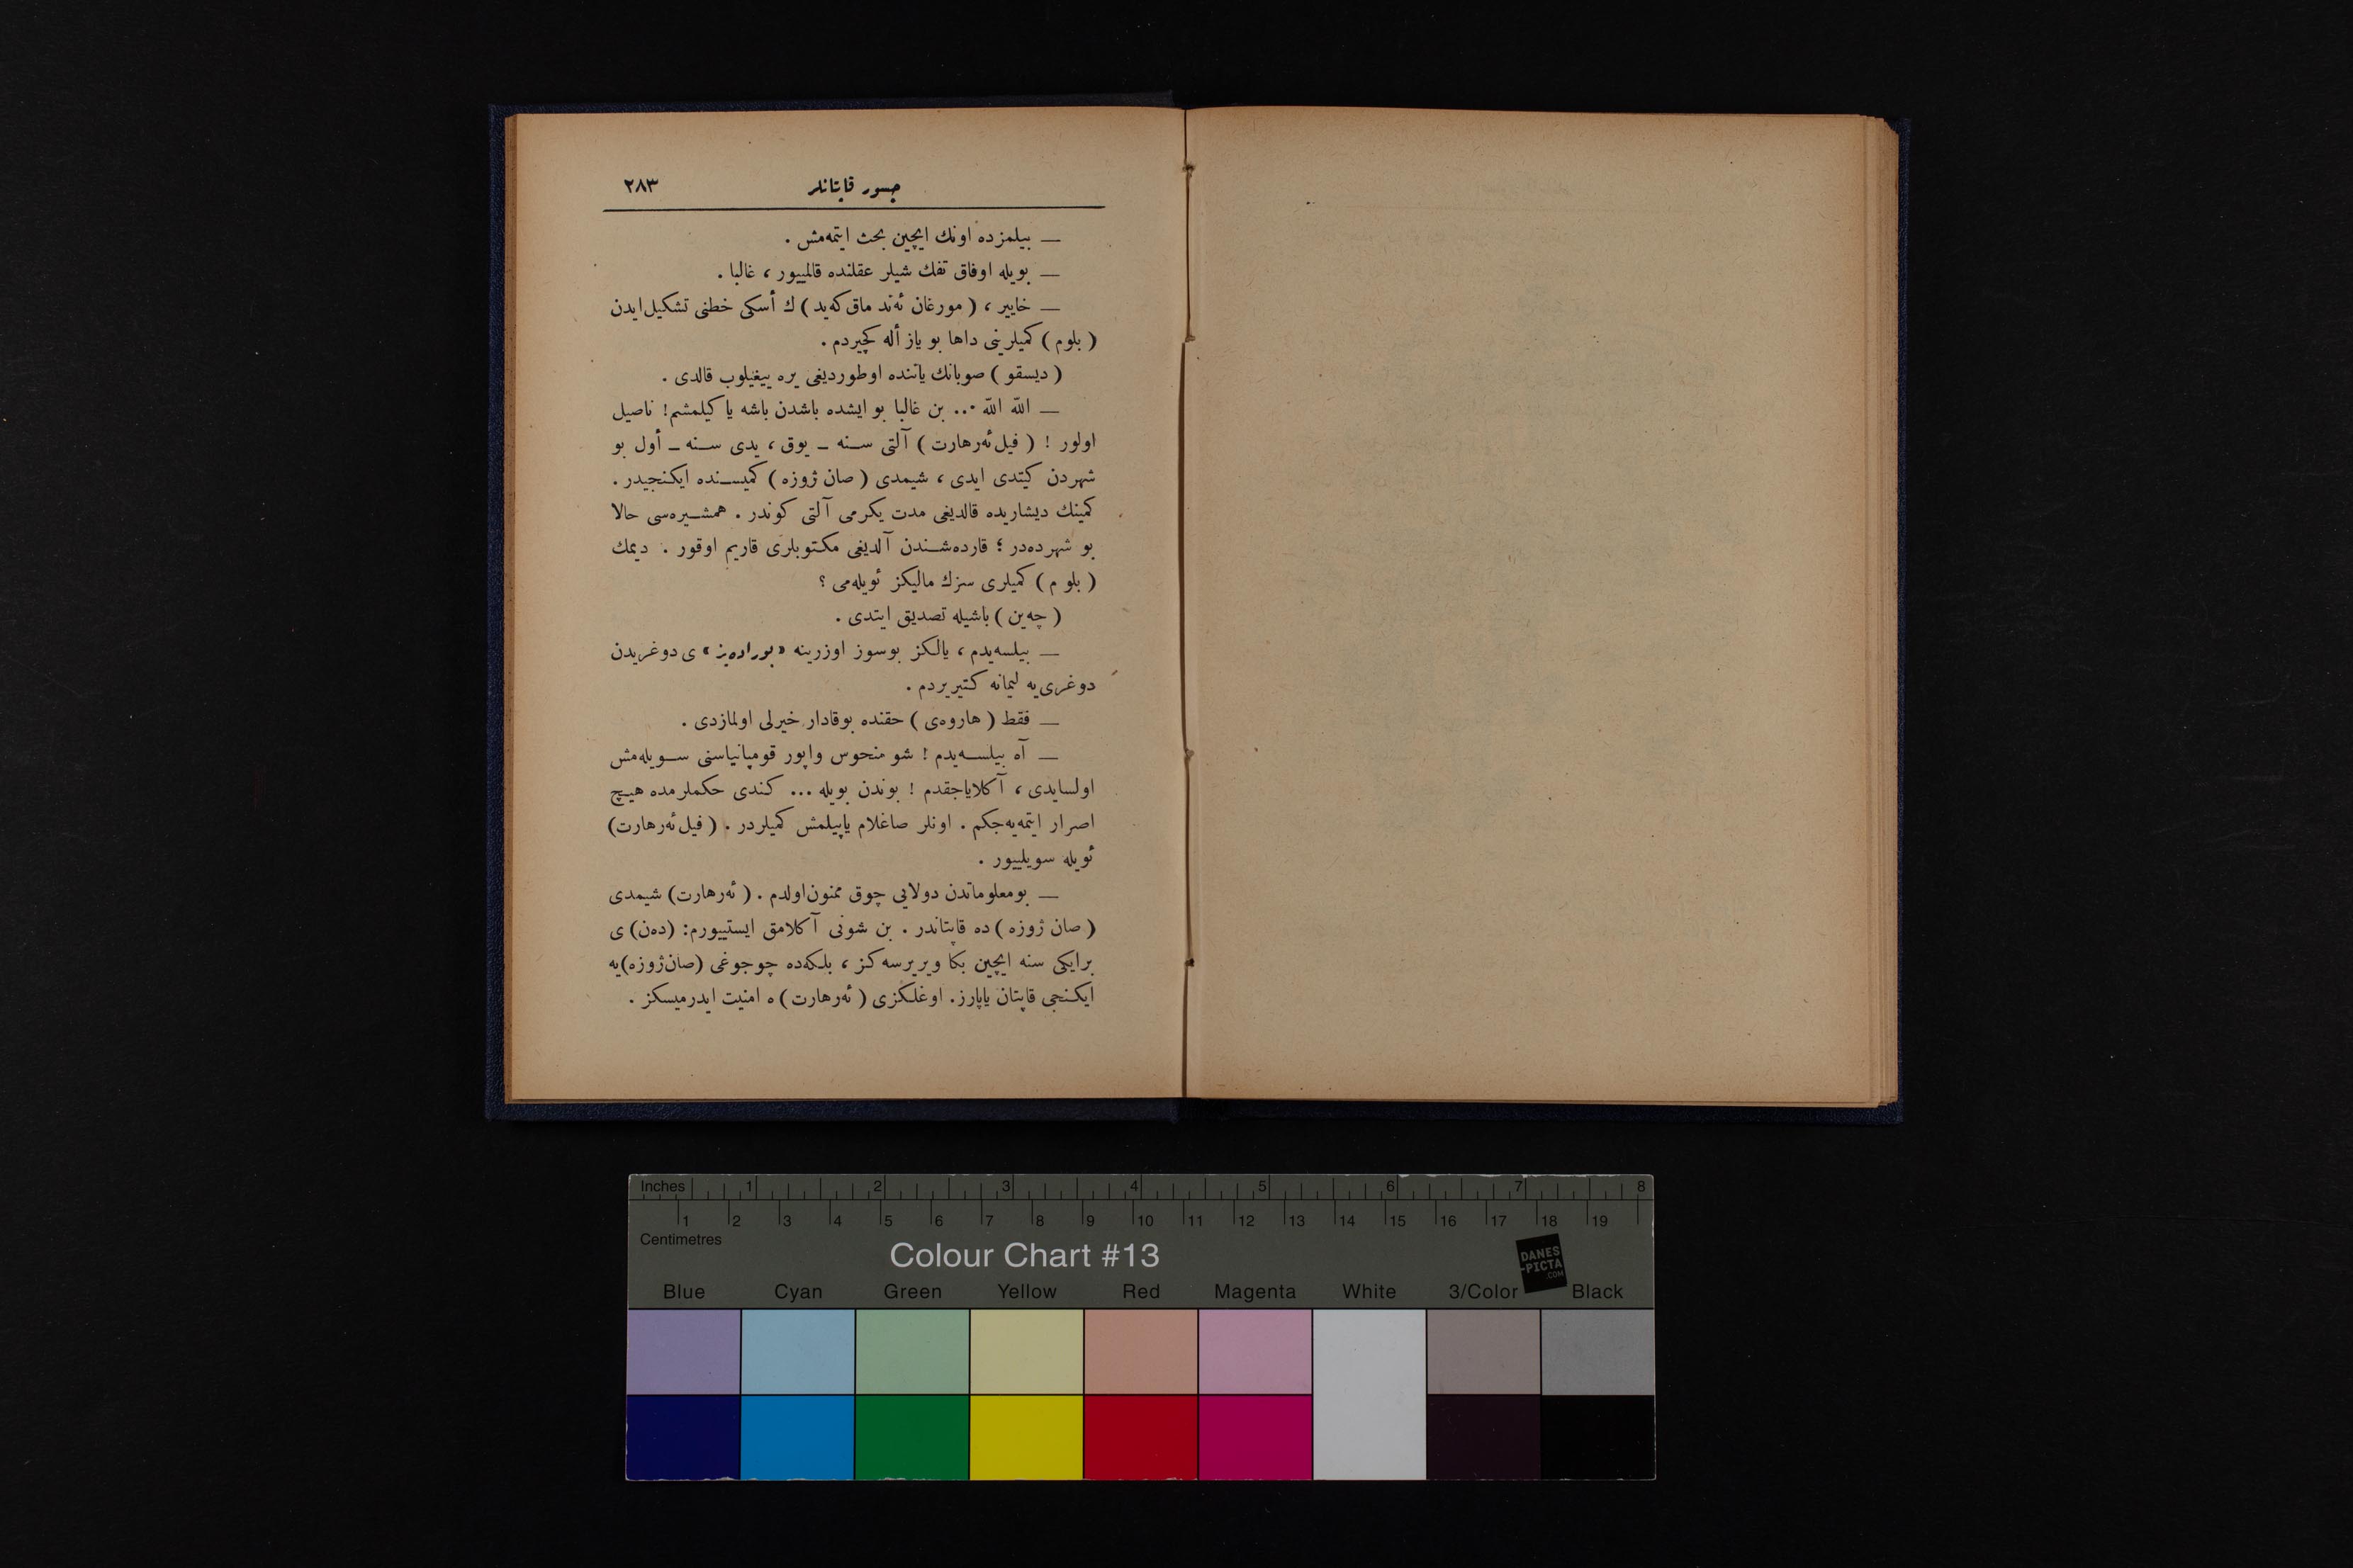 جسور قاپتانلر ٢٨٣
— بيلمزده اونك ايچين بحث ايتمه‌مش .
— بويله اوفاق تفك شيلر عقلنده قالمييور ، غالبا .
— خايير ، ( مورغان ئه‌ند ماق كه‌يد ) ك أسكى خطنى تشكيل ايدن
( بلوم ) كميلرينى داها بو ياز أله كچيردم .
( ديسقو ) صوبانك ياننده اوطورديغى يره ييغيلوب قالدى .
— الله الله ... بن غالبا بو ايشده باشدن باشه يا كيلمشم ! ناصيل
اولور ! ( فيل ئه‌رهارت ) آلتى سنه – يوق ، يدى سنه – أول بو
شهردن كيتدى ايدى ، شيمدى ( صان ژوزه ) كميسنده ايكنجيدر .
كمينك ديشاريده قالديغى مدت يكرمى آلتى كوندر . همشيره‌سى حالا
بو شهرده‌در ؛ قارده‌شندن آلديغى مكتوبلرى قاريم اوقور . ديمك
( بلوم ) كميلرى سزك ماليكز ئويله‌مى ؟
( چه‌ين ) باشيله تصديق ايتدى .
— بيلسه‌يدم ، يالكز بوسوز اوزرينه « بوراده‌يز » ى دوغريدن
دوغرى‌يه ليمانه كتيريردم .
— فقط ( هاروه‌ى ) حقنده بوقادار خيرلى اولمازدى .
— آه بيلسه‌يدم ! شو منحوس واپور قومپانياسنى سويله‌مش
اولسايدى ، آكلاياجقدم ! بوندن بويله ... كندى حكملرمده هيچ
اصرار ايتمه‌يه‌جكم . اونلر صاغلام ياپيلمش كميلردر . ( فيل ئه‌رهارت )
ئويله سويلييور .
— بومعلوماتدن دولايى چوق ممنون اولدم . ( ئه‌رهارت ) شيمدى
( صان ژوزه ) ده قاپتاندر . بن شونى آكلامق ايستييورم : ( ده‌ن ) ى
برايكى سنه ايچين بكا ويريرسه‌كز ، بلكه‌ده چوجوغى ( صان ژوزه ) يه
ايكنجى قاپتان ياپارز . اوغلكزى ( ئه‌رهارت ) ه امنيت ايدرميسكز .
Inches 1 2 3 4 5 6 7 8
1 2 3 4 5 6 7 8 9 10 11 12 13 14 15 16 17 18 19
Centimetres
Colour Chart #13
DANES
-PICTA
.COM
Blue Cyan Green Yellow Red Magenta White 3/Color Black